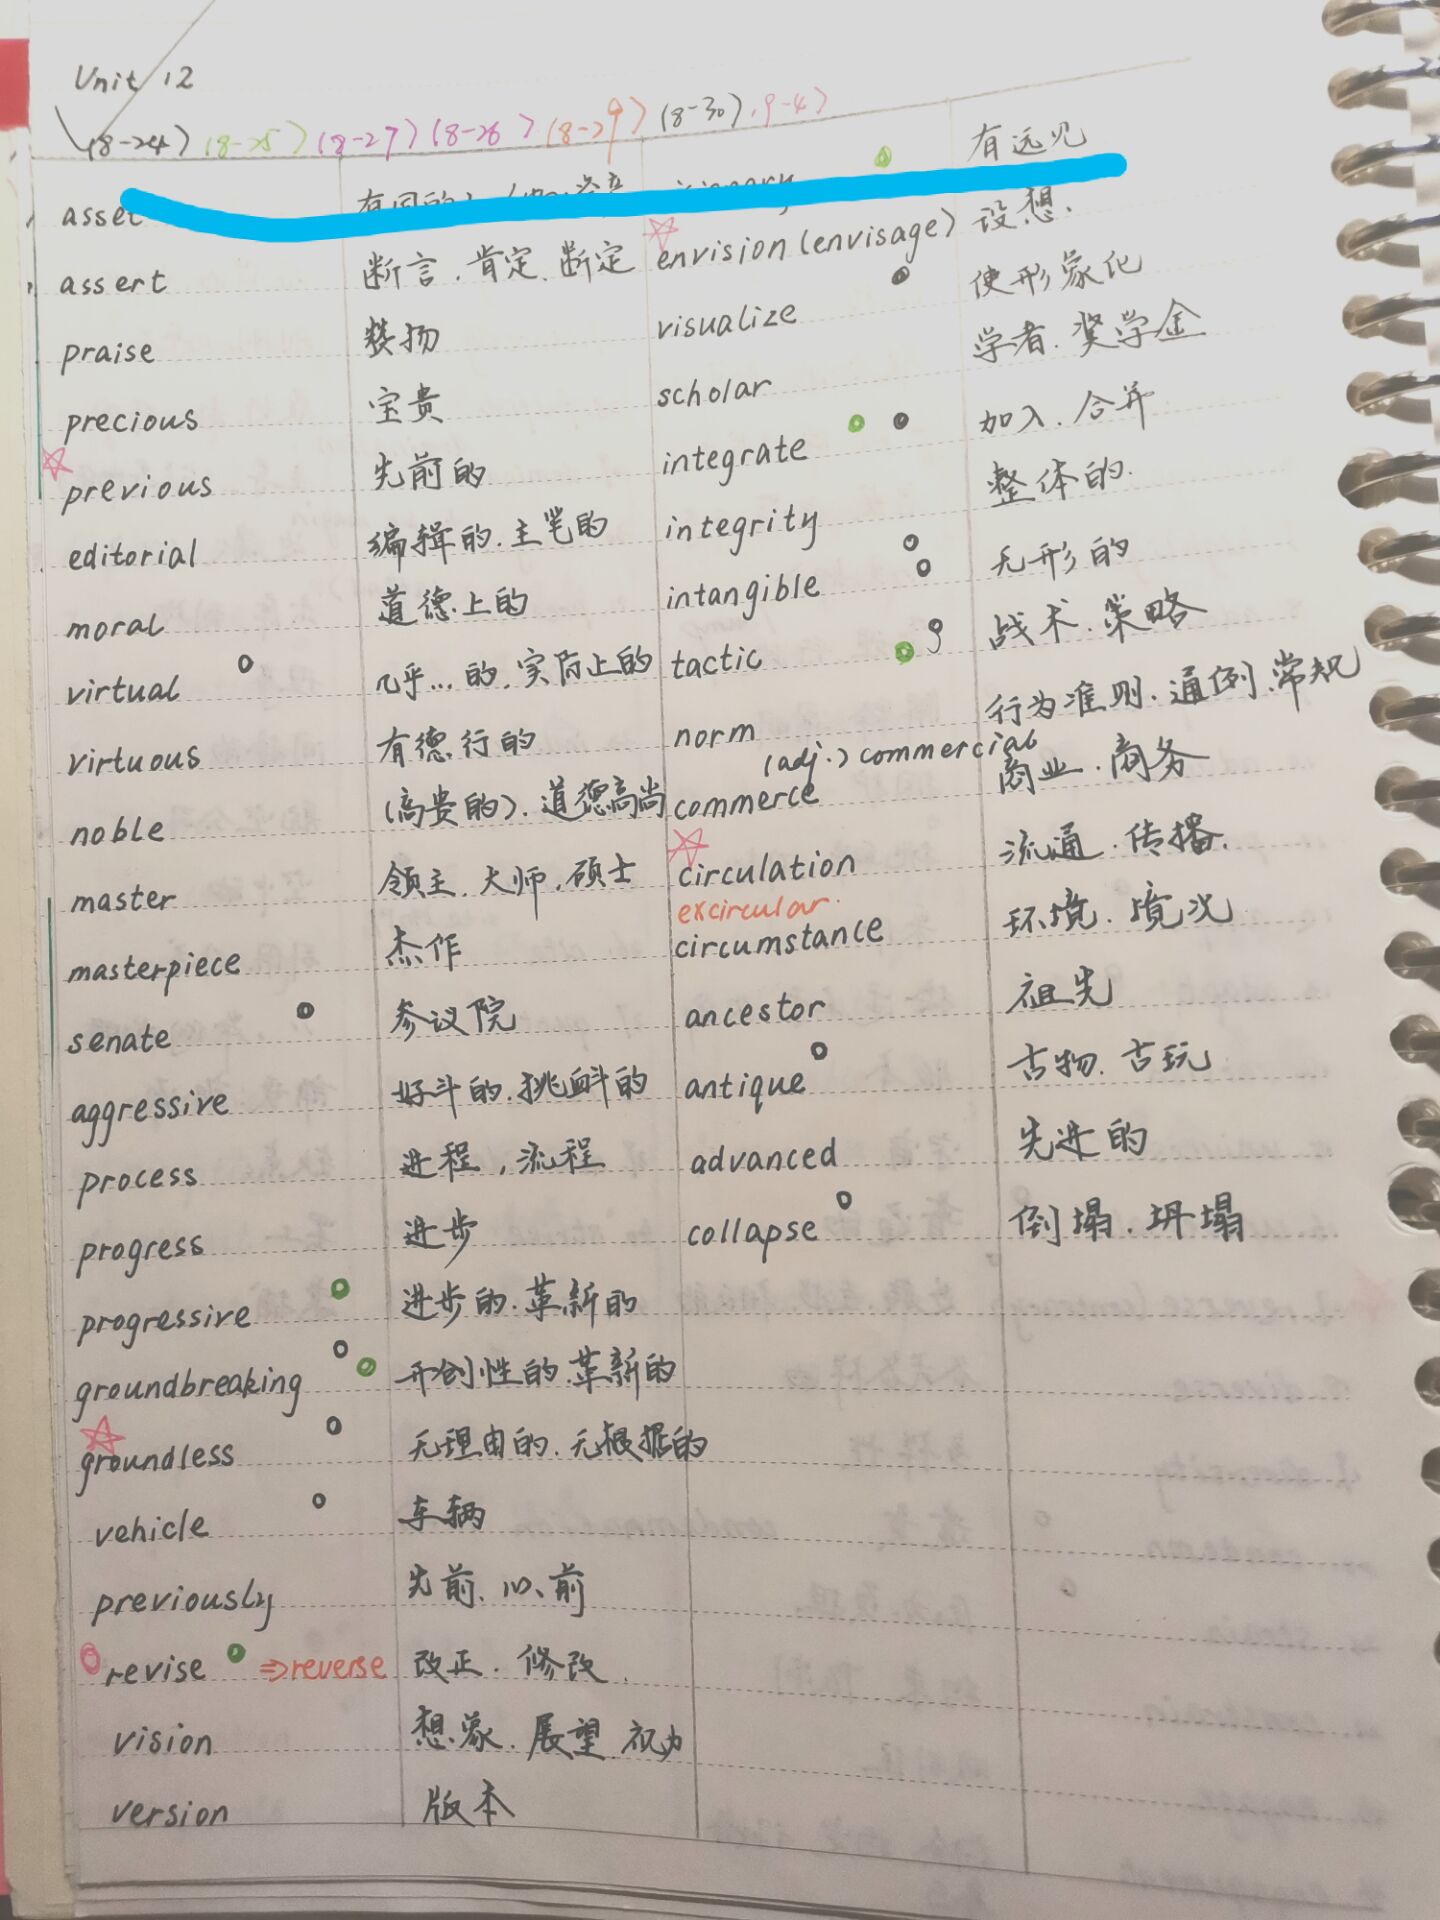 Unit 12
(8-24) (8-25) (8-27) (8-26) (8-29) (8-30) (9-4)
有远见
asset
assert 断言.肯定.断定 envision (envisage) 设想.
praise 赞扬 visualize 使形象化
precious 宝贵 scholar 学者.奖学金
previous 先前的 integrate 加入.合并
editorial 编辑的.主笔的 integrity 整体的.
moral 道德上的 intangible 无形的
virtual 几乎...的.实际上的 tactic 战术.策略
virtuous 有德行的 norm 行为准则.通例.常规
(adj.) commercial
noble (高贵的).道德高尚 commerce 商业.商务
master 领主.大师.硕士 circulation 流通.传播.
excircular.
masterpiece 杰作 circumstance 环境.境况
senate 参议院 ancestor 祖先
aggressive 好斗的.挑衅的 antique 古物.古玩
process 进程,流程 advanced 先进的
progress 进步 collapse 倒塌.坍塌
progressive 进步的.革新的
groundbreaking 开创性的.革新的
groundless 无理由的.无根据的
vehicle 车辆
previously 先前.以前
revise ⇒reverse 改正.修改.
vision 想象.展望.视力
version 版本